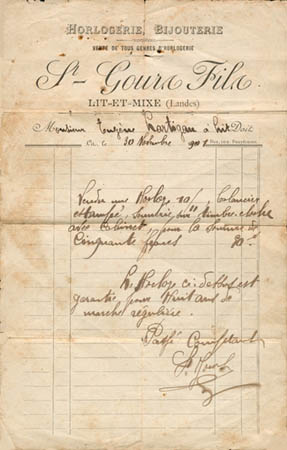 HORLOGERIE, BIJOUTERIE
VENTE DE TOUS GENRES D'HORLOGERIE
St- Gours Fils
LIT-ET-MIXE (Landes)
Monsieur Eugène à Lit Doit
Ce, le 30 Novembre 1901
Vendu une Horloge 10/ balancier
estampé, sur timbre cloche
avec Cabinet, pour la somme de
Cinquante francs 50 "
L'Horloge ci-dessus est
garantie pour Huit ans de
marche régulière.
Payé Comptant